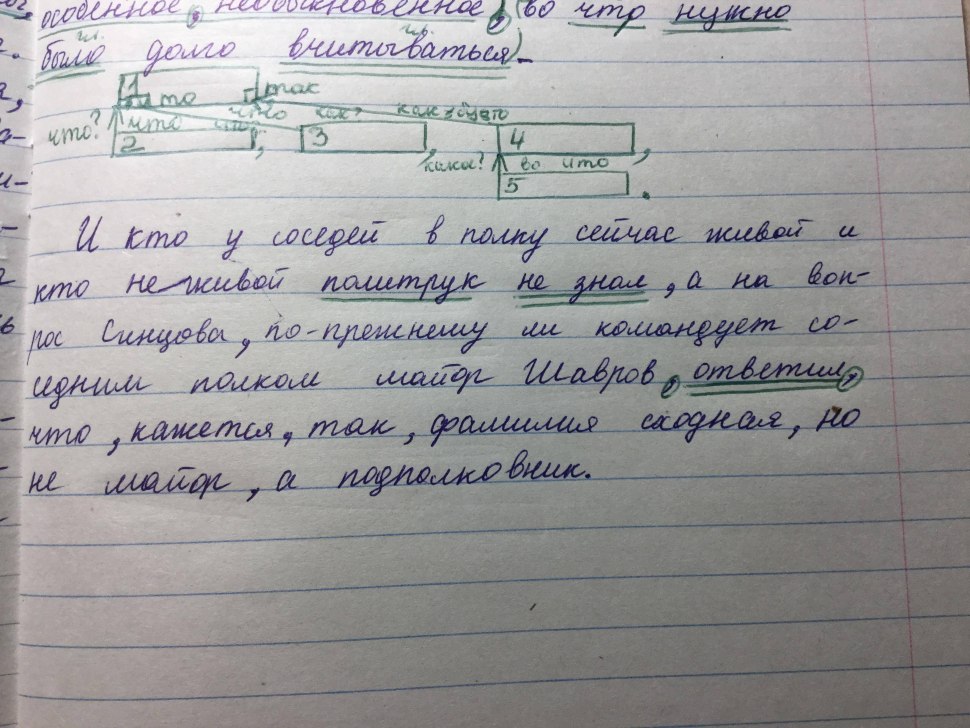 особенное, необыкновенное, во что нужно
гл. гл.
было долго вчитываться.
1
что так
что как? как будто
что? что
2 , 3 , 4 ,
какое? во что
5 .
И кто у соседей в полку сейчас живой и
кто не живой политрук не знал, а на воп-
рос Синцова, по-прежнему ли командует со-
седним полком майор Шавров, ответил,
что, кажется, так, фамилия сходная, но
не майор, а подполковник.